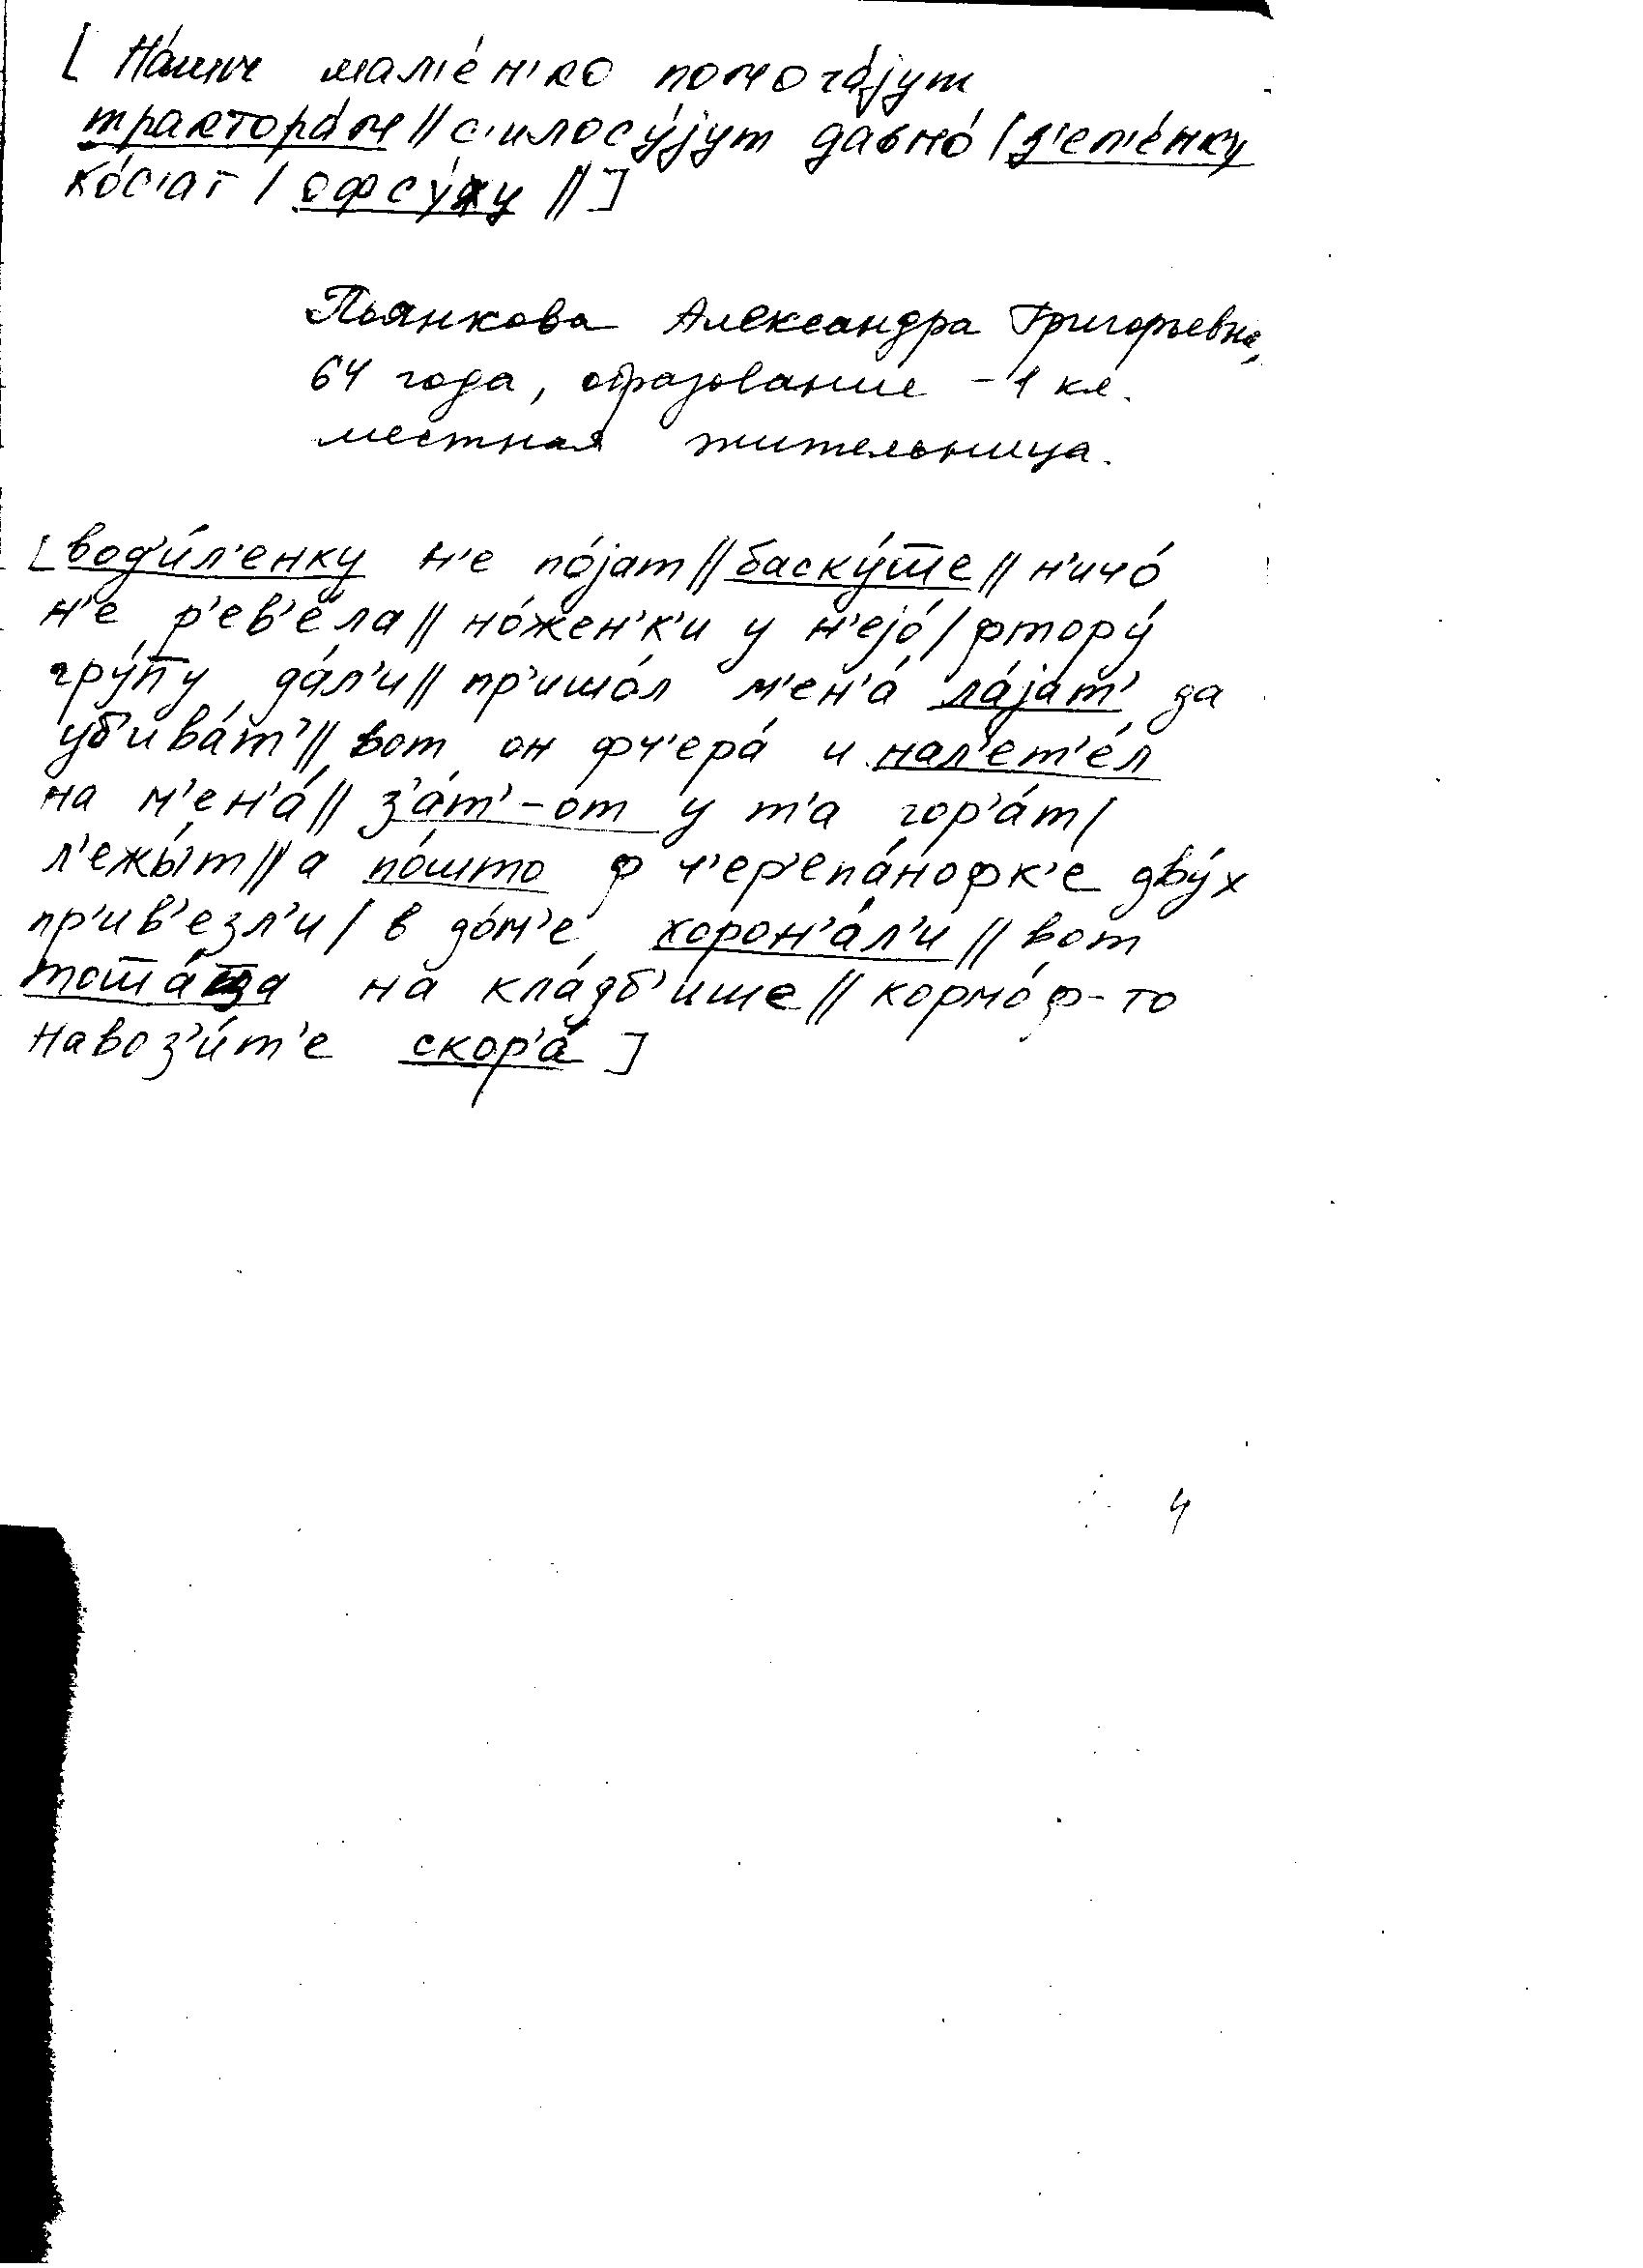 [ На́шы мал'е́н'ко помога́jут
трактора́м // с'илосу́jут давно́ / з'ел'е́нку
ко́с'ат / офсу́ху // ]
Пьянкова Александра Григорьевна,
64 года, образование - 1 кл.
местная жительница.
[ вод'и́л'енку н'е по́jат // баску́т̅е // н'ичо́
н'е р'ев'е́ла // но́жен'к'и у н'еjо́ / фтору́
гру́п̅у да́л'и // пр'ишо́л м'ен'а́ ла́jат' за
уб'ива́т' // вот он фч'ера́ и нал'ет'е́л
на м'ен'а́ // з'а́т'-от у т'а гор'а́т /
л'ежы́т // а по́што ф ч'ер'епа́нофк'е дву́х
пр'ив'езл'и / в до́м'е хорон'а́л'и // вот
на кла́дб'ише // кормо́ф-то
навоз'и́т'е скор'а́ ]
4